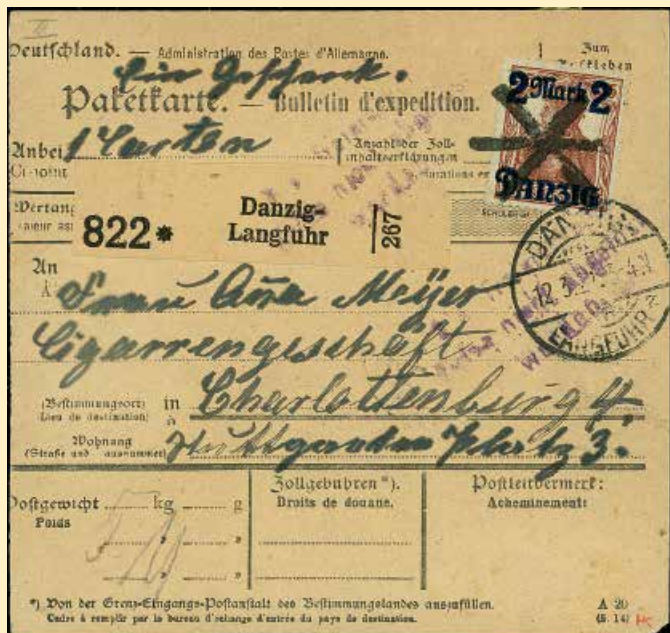 Deutschland. — Administration des Postes d'Allemagne.
Zum
Für Geschenk.
Paketkarte. — Bulletin d'expedition.
2 Mark 2
DANZIG
Anbei 1 Carton
Ci-joint
Anzahl der Zoll-
inhaltserklärungen
Wertang
822* Danzig-
Langfuhr 267
DANZIG
LANGFUHR
An
À
Frau Anna Meijer
Cigarrengeschäft
(Bestimmungsort)
Lieu de destination)
in
à
Charlottenburg 4
Wohnung
(Straße und ausnummer)
Stuttgarter Platz 3.
Postgewicht kg g
Poids
Zollgebühren *).
Droits de douane.
Postleitvermerk:
Acheminement:
*) Von der Grenz-Eingangs-Postanstalt des Bestimmungslandes auszufüllen.
Cadre à remplir par le bureau d'échange d'entrée du pays de destination.
A 20
(5. 14)